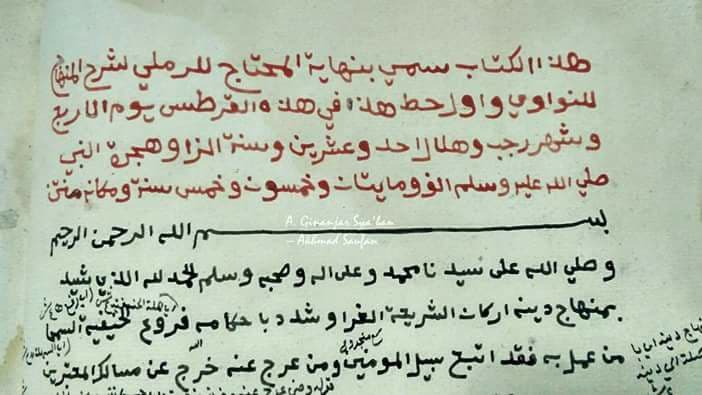 هذا الكتاب سمي بنهاية المحتاج للرملي لشرح المنهاج
للنواوي واول حط هذا في هذه القرطس يوم الاربع
وشهر رجب وهلال احد وعشرين وسنة الزا وهجرة النبي
صلي الله عليه وسلم الف ومايتان وخمسون وخمس سنة ومكانه متن
بسم الله الرحمن الرحيم
A. Ginanjar Sya'ban
– Ahmad Saufan
وصلي الله على سيدنا محمد وعلى اله وصحبه وسلم الحمد لله الذي شيد
بمنهاج دينه اركان الشريعة الغرا وشدد باحكامه فروع الحنيفية السمحا
من عمل به فقد اتبع سبيل المومنين ومن عرج عنه خرج عن مسالك المعتبرين